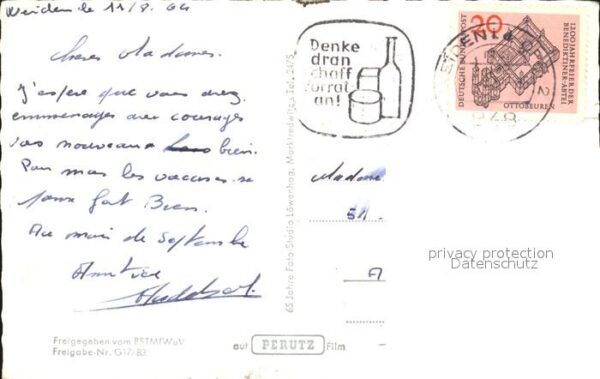 Weiden le 11/8. 64
Chères Madames.
J'espère que vous avez
emmenager avec courages
vos nouveaux bien.
Pour moi les vacances se
Bien.
Au mois de Septembre
Amitiés
Freigegeben vom BSTMfWuV
Freigabe-Nr. G17/83
65 Jahre Foto Studio Löwenhag, Marktredwitz, Tel. 2475
auf PERUTZ Film
Denke
dran
schaff
Vorrat
an!
WEIDEN
2
DEUTSCHE BUNDESPOST
20
1200 JAHRFEIER DER
BENEDIKTINER-ABTEI
OTTOBEUREN
Madame
privacy protection
Datenschutz